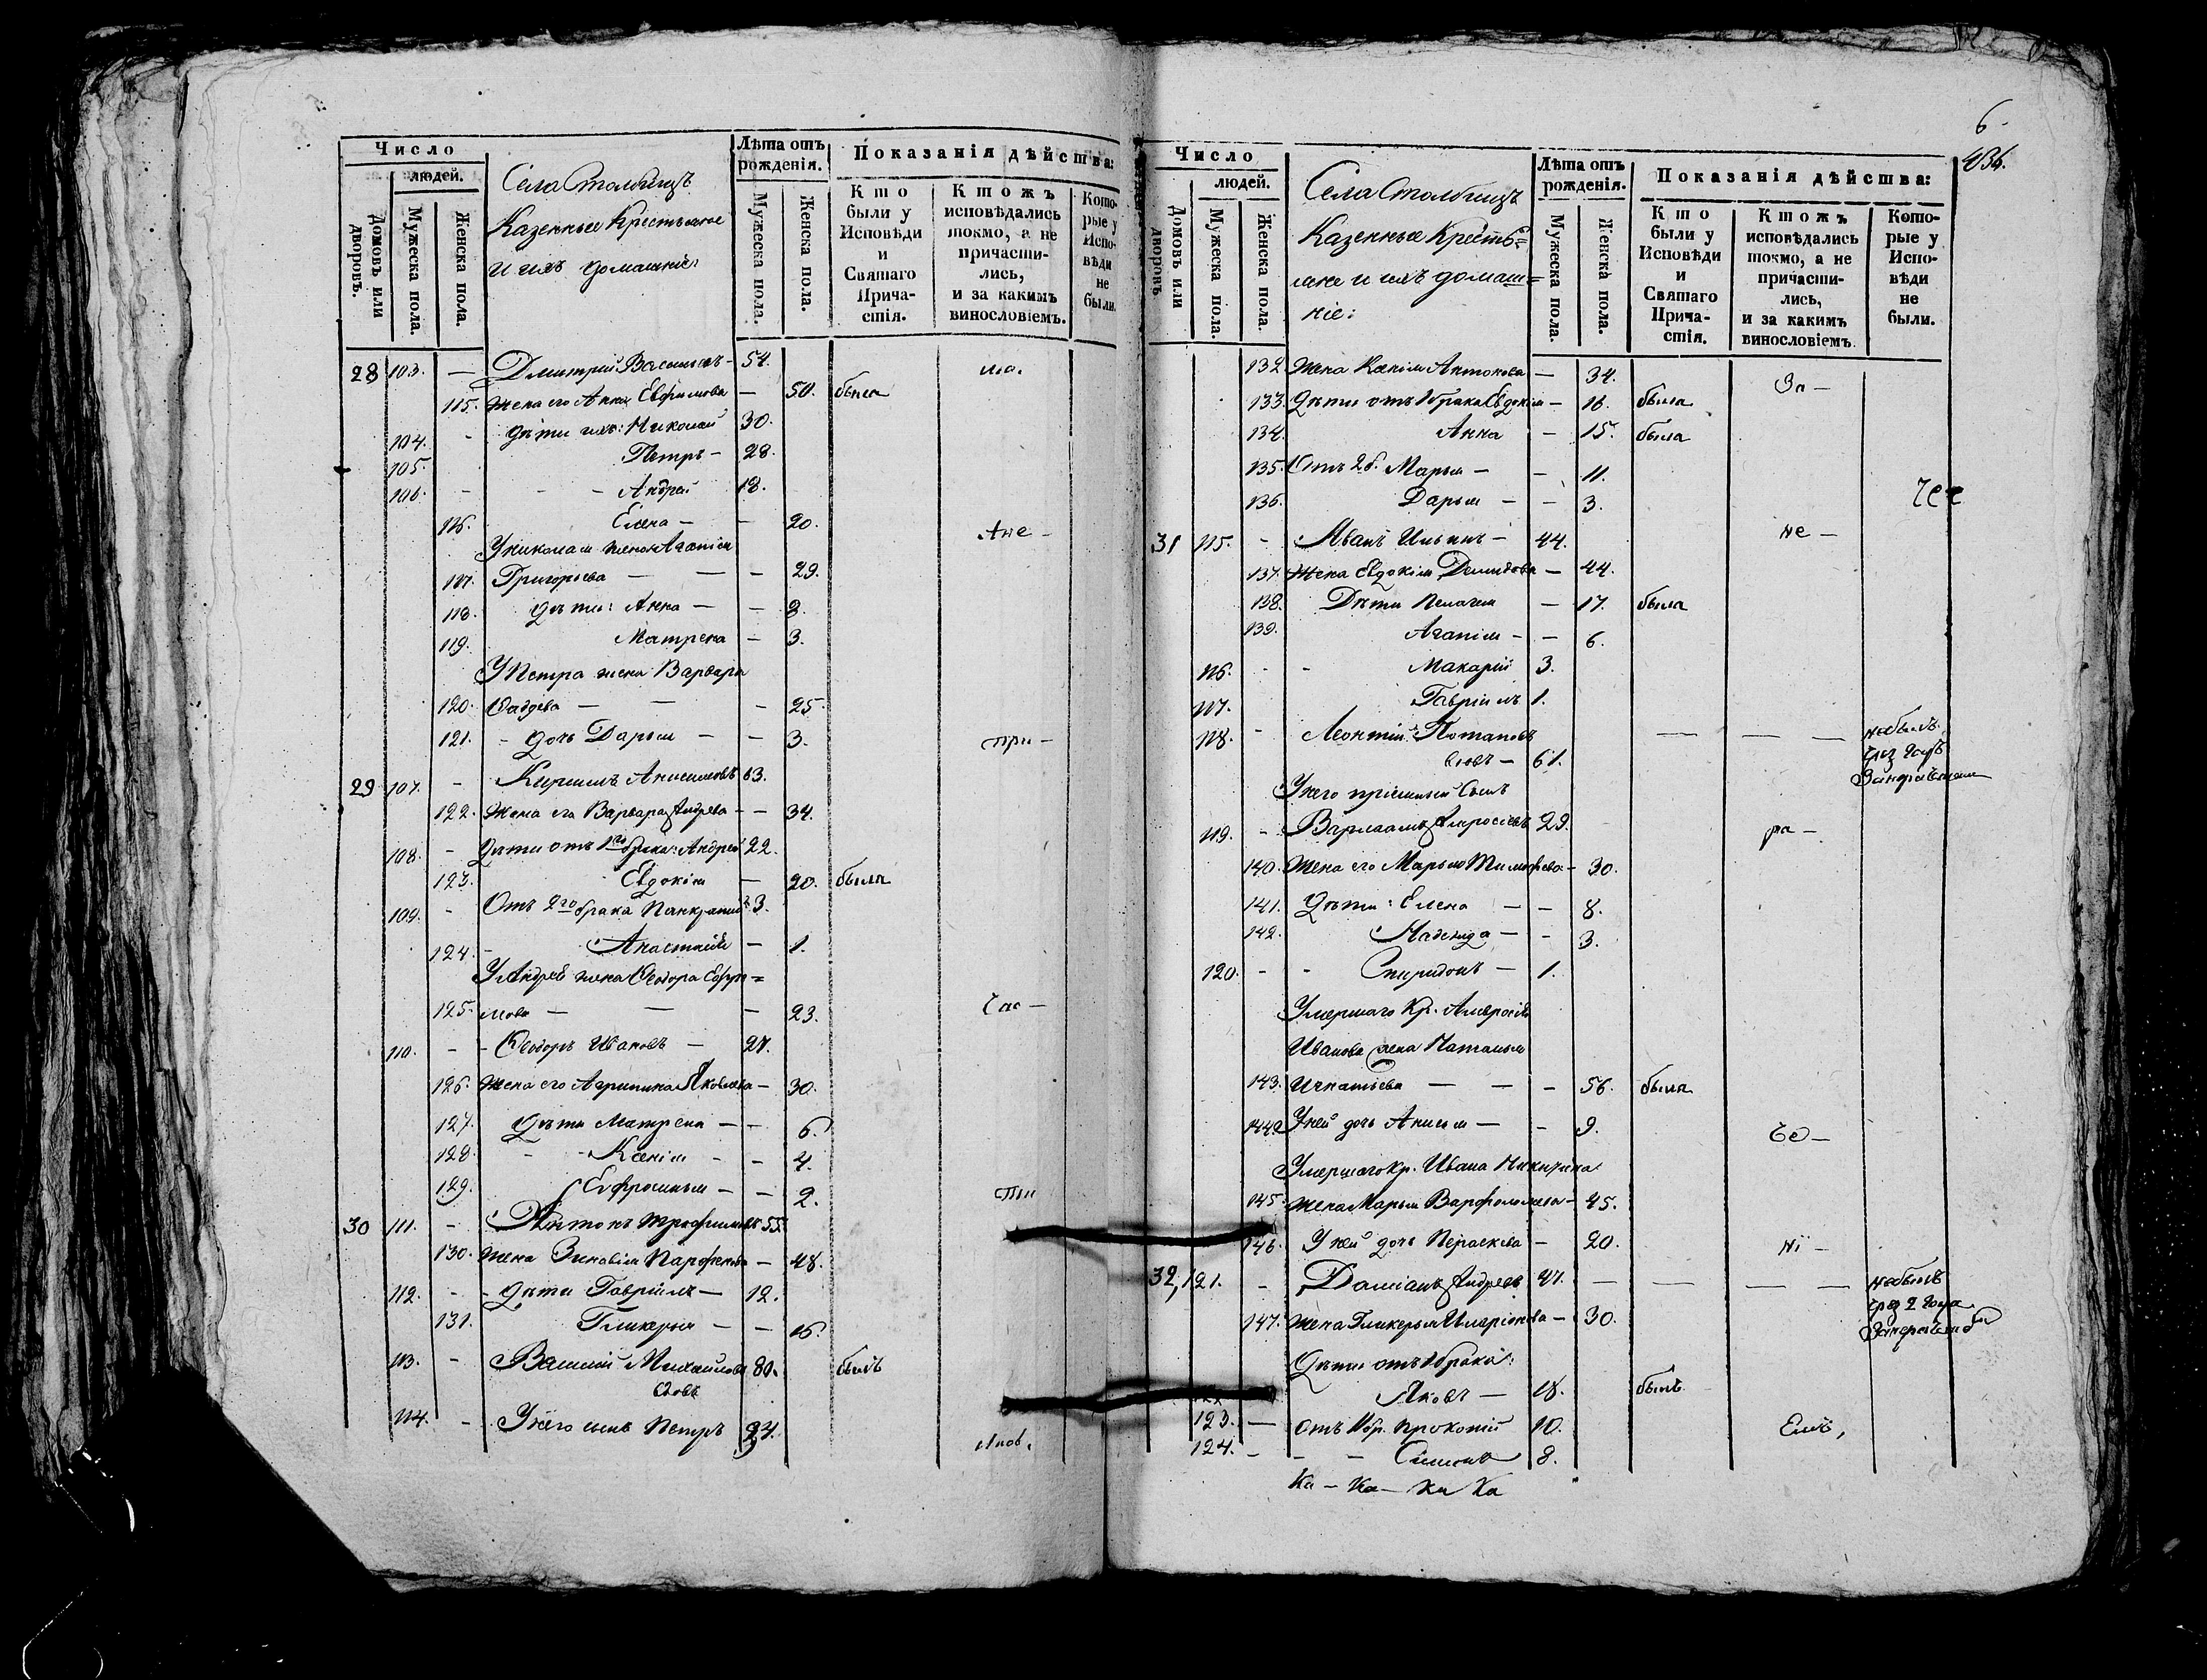 Число
людей.
Домовъ или дворовъ.
Мужеска пола.
Женска пола.
Села Столбищъ
Казенные Крестьяне
и ихъ домашніе:
Лѣта отъ рожденія.
Мужеска пола.
Женска пола.
Показанія дѣйства:
Кто были у Исповѣди и Святаго Причастія.
Ктожъ исповѣдались токмо, а не причастились, и за какимъ винословіемъ.
Которые у Исповѣди не были.
28 103. — Дмитрій Васильевъ — 54.
115. Жена его Анна Ефимова — 50. была
104. - Дѣти ихъ: Николай 30.
105. Петръ — 28.
106. - - - Андрей 18.
116. Елена — - 20. Ане -
У Николая жена Агапія
117. Григорьева — — - 29.
118. Дѣти: Анна — - 8.
119. Матрена — 3.
У Петра жена Варвара
120. Фадѣева — — - 25.
121. - дочь Дарья — - 3. при -
29 107. - Кирилъ Анисимовъ 63.
122. Жена его Варвара Андрева - - 34.
108. - Дѣти отъ 1го брака: Андрей 22.
123. Евдокія — 20. была
109. - Отъ 2го брака Панкратій 3.
124. - Анастасія — 1.
У Андрея жена Ѳеодора Ефи=
125. мова — — — 23. Час -
110. - - Ѳеодоръ Ивановъ — 27.
126. Жена его Агрипина Яковлева — 30.
127. Дѣти Матрена — - 6.
128. - - Ксенія - - 4.
129. Евфросинья — - 2. сти
30 111. - Антонъ Трофимовъ 55.
130. Жена Зиновія Парфенова — 48.
112. - - Дѣти Гавріилъ — 12.
131. Гликерья — - 16.
113. - Василій Михайловъ 80. былъ
вдовъ
114. - У него сынъ Петръ 24.
6
436.
Число
людей.
Домовъ или дворовъ
Мужеска пола.
Женска пола.
Села Столбищъ
Казенные Кресть=
яне и ихъ домаш=
ніе:
Лѣта отъ рожденія.
Мужеска пола.
Женска пола.
Показанія дѣйства:
Кто были у Исповѣди и Святаго Причастія.
Ктожъ исповѣдались токмо, а не причастились, и за какимъ винословіемъ.
Которые у Исповѣди не были.
132. Жена Ксенія Антонова — 34. За —
133. Дѣти отъ 1 брака Евдокія — 16. была
134. Анна — 15. была
135. Отъ 2 б. Марья — — 11.
136. Дарья — — 3.
31 115. - Иванъ Ильинъ — 44. не —
137. Жена Евдокія Демидова — 44.
138. Дѣти Пелагея — 17. была
139. Агапія - - 6.
116. - - Макарій 3.
117. Гавріилъ 1.
118. - Леонтій Потаповъ — — — небылъ
вдовъ — 61. чрез годъ
У него пріемный сынъ
119. - Варлаамъ Амросіевъ 29. ра —
140. Жена его Марья Тимофѣева — 30.
141. Дѣти: Елена — — 8.
142. Надежда — - 3.
120. - - Спиридонъ — 1.
Умершаго Кр. Амвросія
Иванова жена Наталья
143. Игнатьева — — - 56. была
144. У ней дочь Анисья — - 9.
Умершаго Кр. Ивана Никитина
145. Жена Марья Варфоломеева — 45.
146. У ней дочь Пераскева — 20. нї —
32, 121. - Даміанъ Андреевъ 47. — — — — небылъ
чрез 2 года
147. Жена Гликерья Иларіонова — 30.
Дѣти отъ 1 брака:
Яковъ — 18. былъ
123. — отъ II бр. Прокопій 10. Емъ,
124. - - - Симонъ 8.
Ка — Ка — Ка Ка